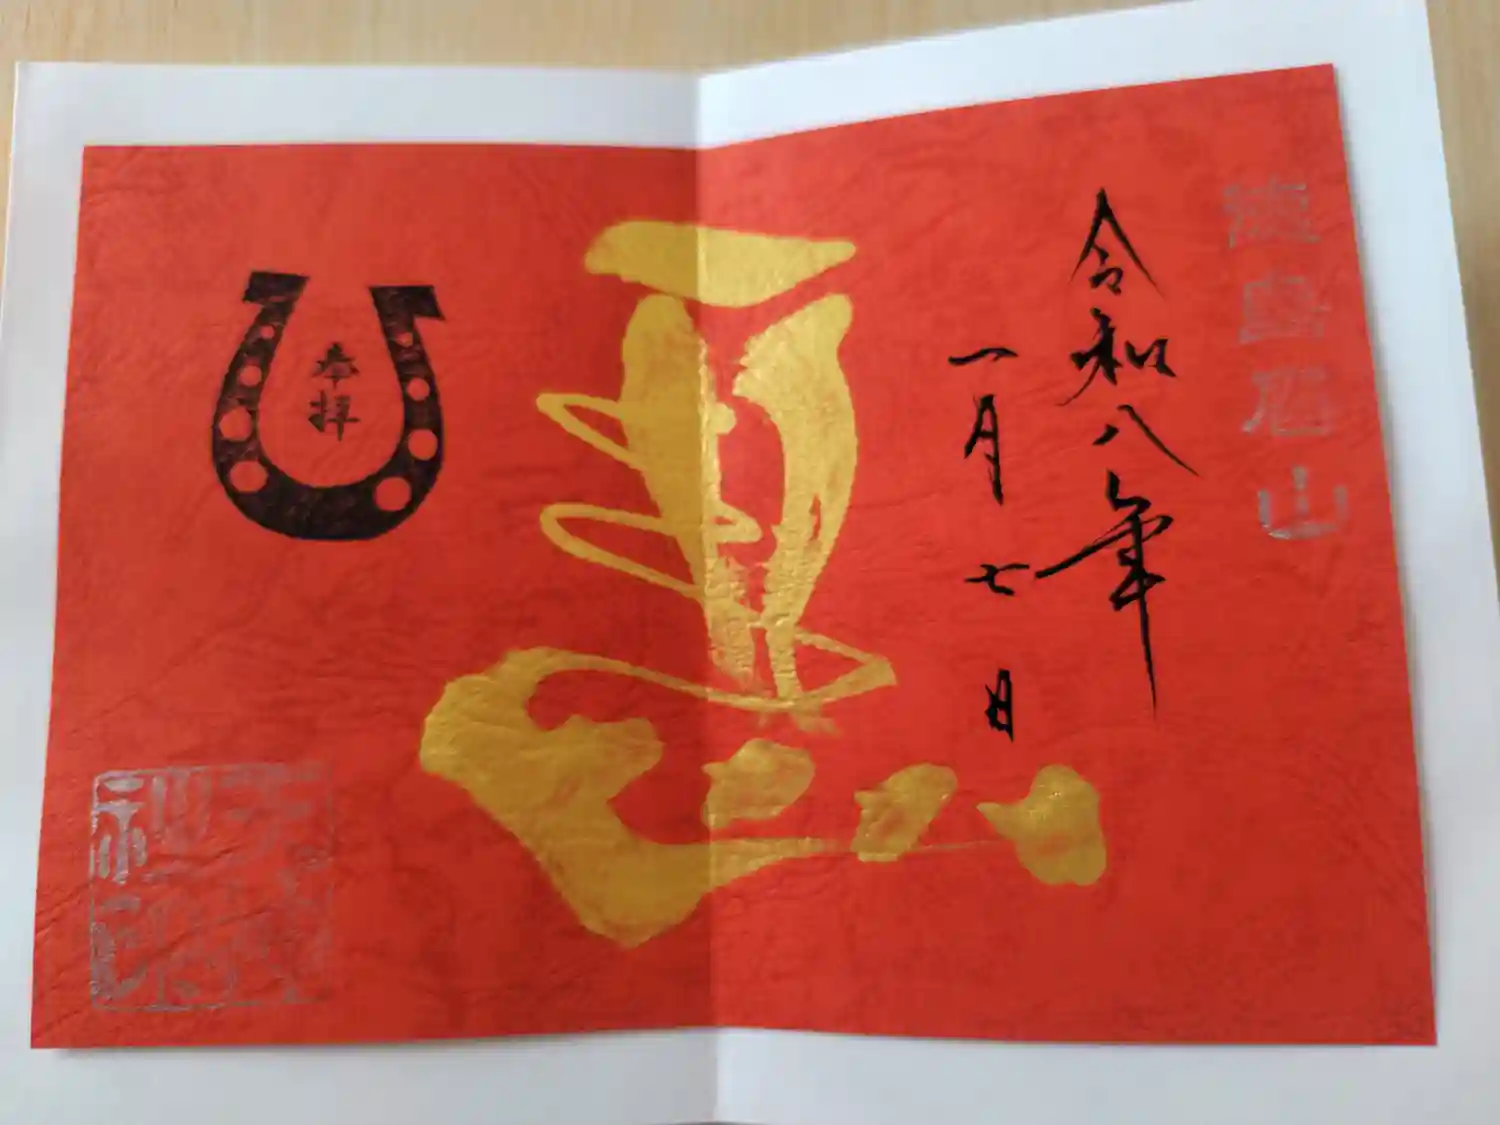 徳島眉山
令和八年
一月七日
馬
奉拝